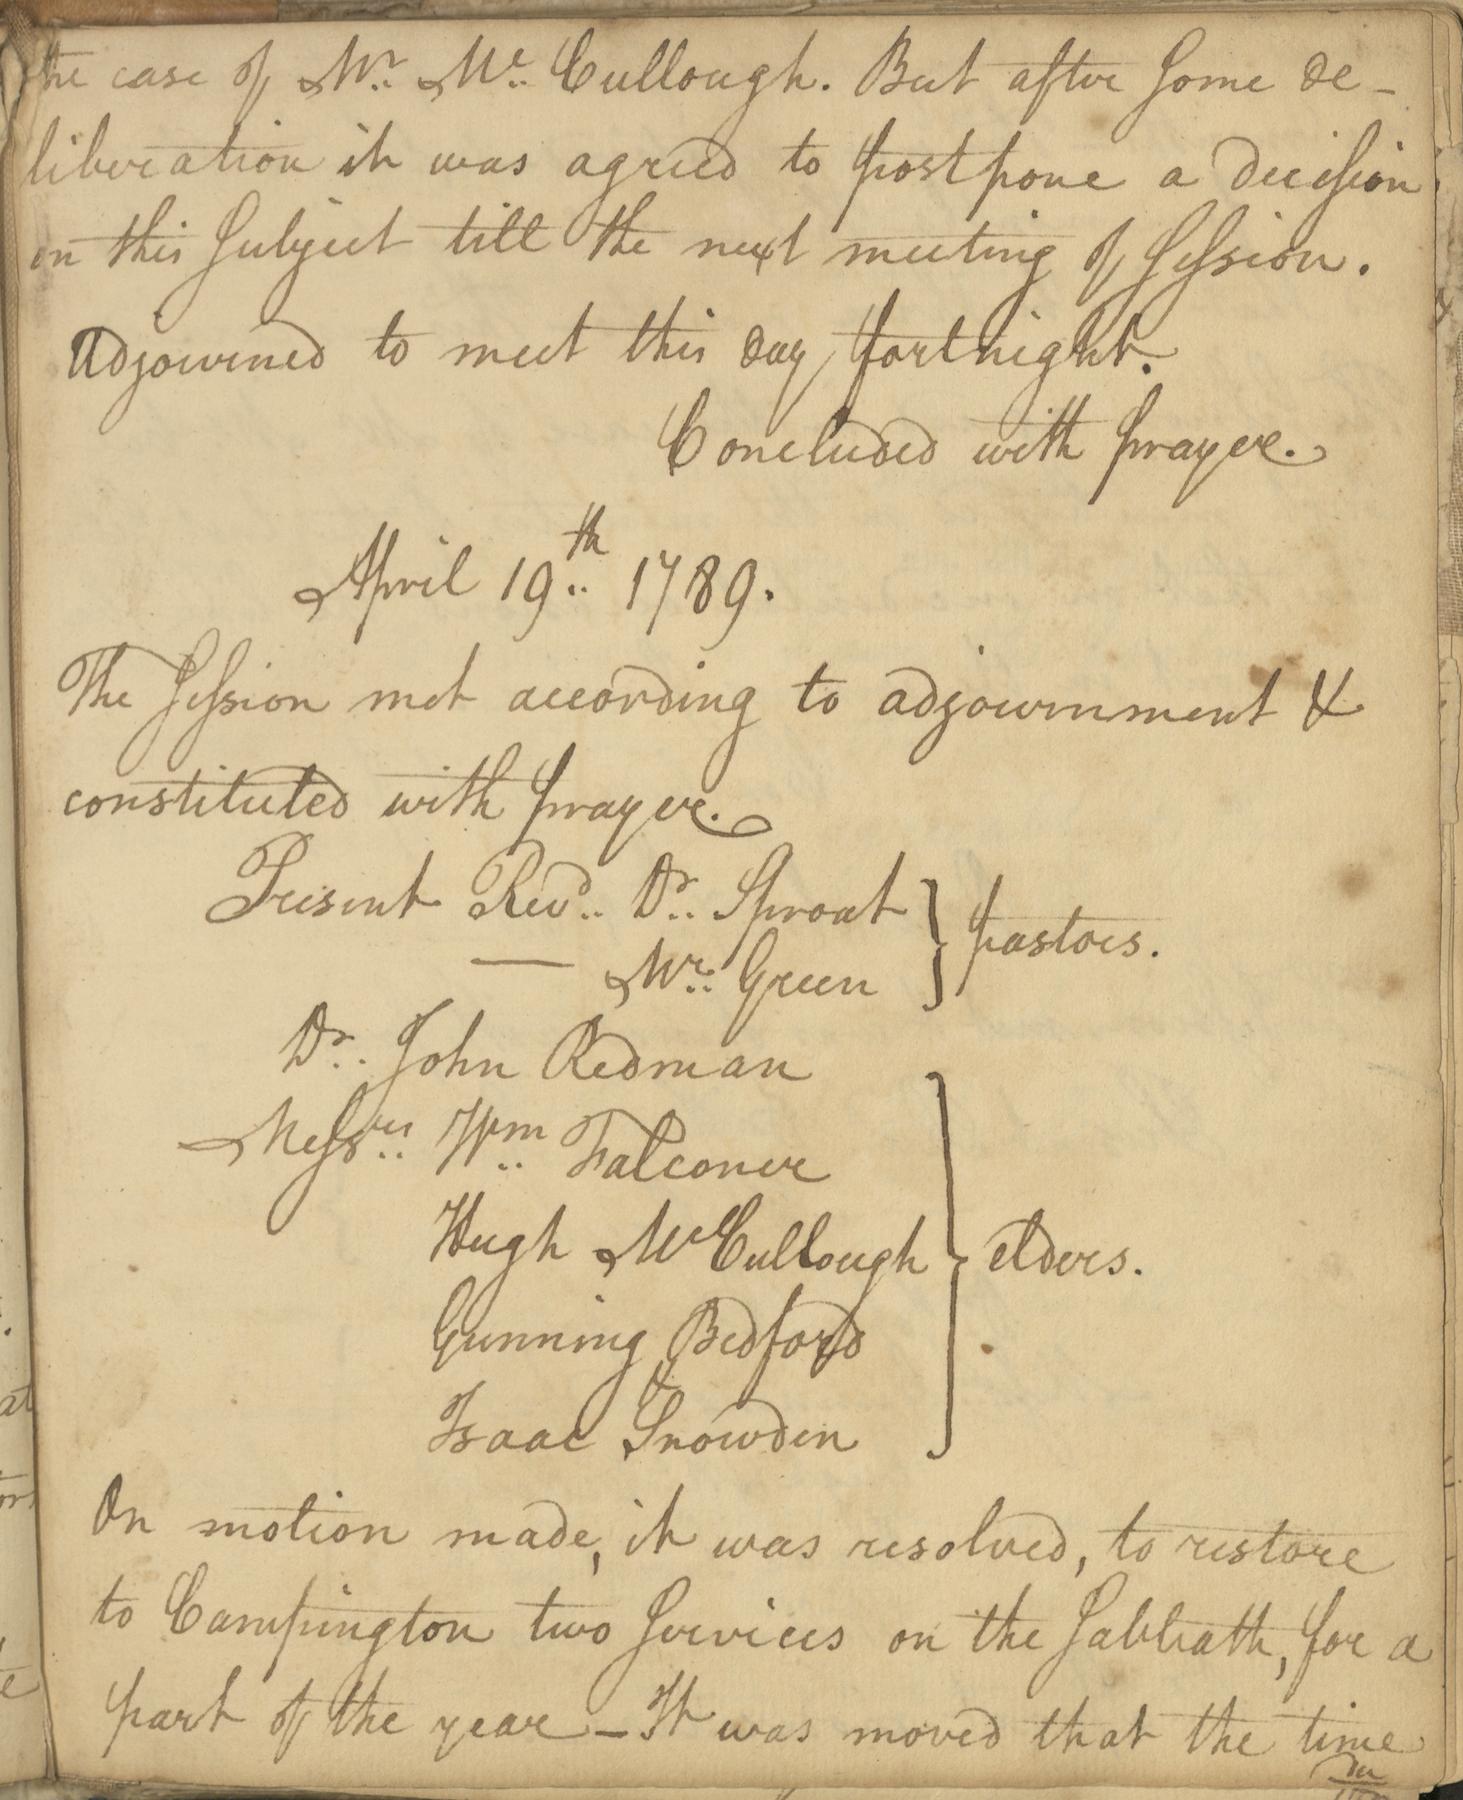 the case of Mr. Mc. Cullough. But after some de-
liberation it was agreed to postpone a decision
on this subject till the next meeting of Session.
Adjourned to meet this day fortnight.
Concluded with prayer.
April 19th. 1789.
The Session met according to adjournment &
constituted with prayer.
Present Revd. Dr. Sproat } pastors.
— Mr. Green
Dr. John Redman
Messrs. Wm. Falconer
Hugh McCullough } elders.
Gunning Bedford
&
Isaac Snowden
On motion made, it was resolved, to restore
to Campington two services on the Sabbath, for a
part of the year – It was moved that the time